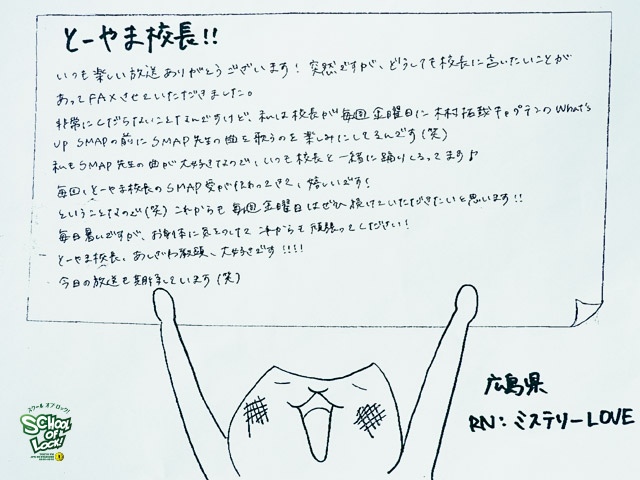 とーやま校長!!
いつも楽しい放送ありがとうございます! 突然ですが、どうしても校長に言いたいことが
あってFAXさせていただきました。
非常にくだらないことなんですけど、私は校長が毎週金曜日に木村拓哉キャプテンのWhat's
UP SMAPの前にSMAP先生の曲を歌うのを楽しみにしてるんです(笑)
私もSMAP先生の曲が大好きなので、いつも校長と一緒に踊りくるってます♪
毎回、とーやま校長のSMAP愛が伝わってきて、嬉しいです!
ということなので(笑) これからも毎週金曜日はぜひ続けていただきたいと思います!!
毎日暑いですが、お身体に気をつけてこれからも頑張ってください!
とーやま校長、あしざわ教頭、大好きです!!!!
今日の放送も期待しています(笑)
広島県
RN:ミステリーLOVE
スクール オブ ロック!
SCHOOL
OF
LOCK!